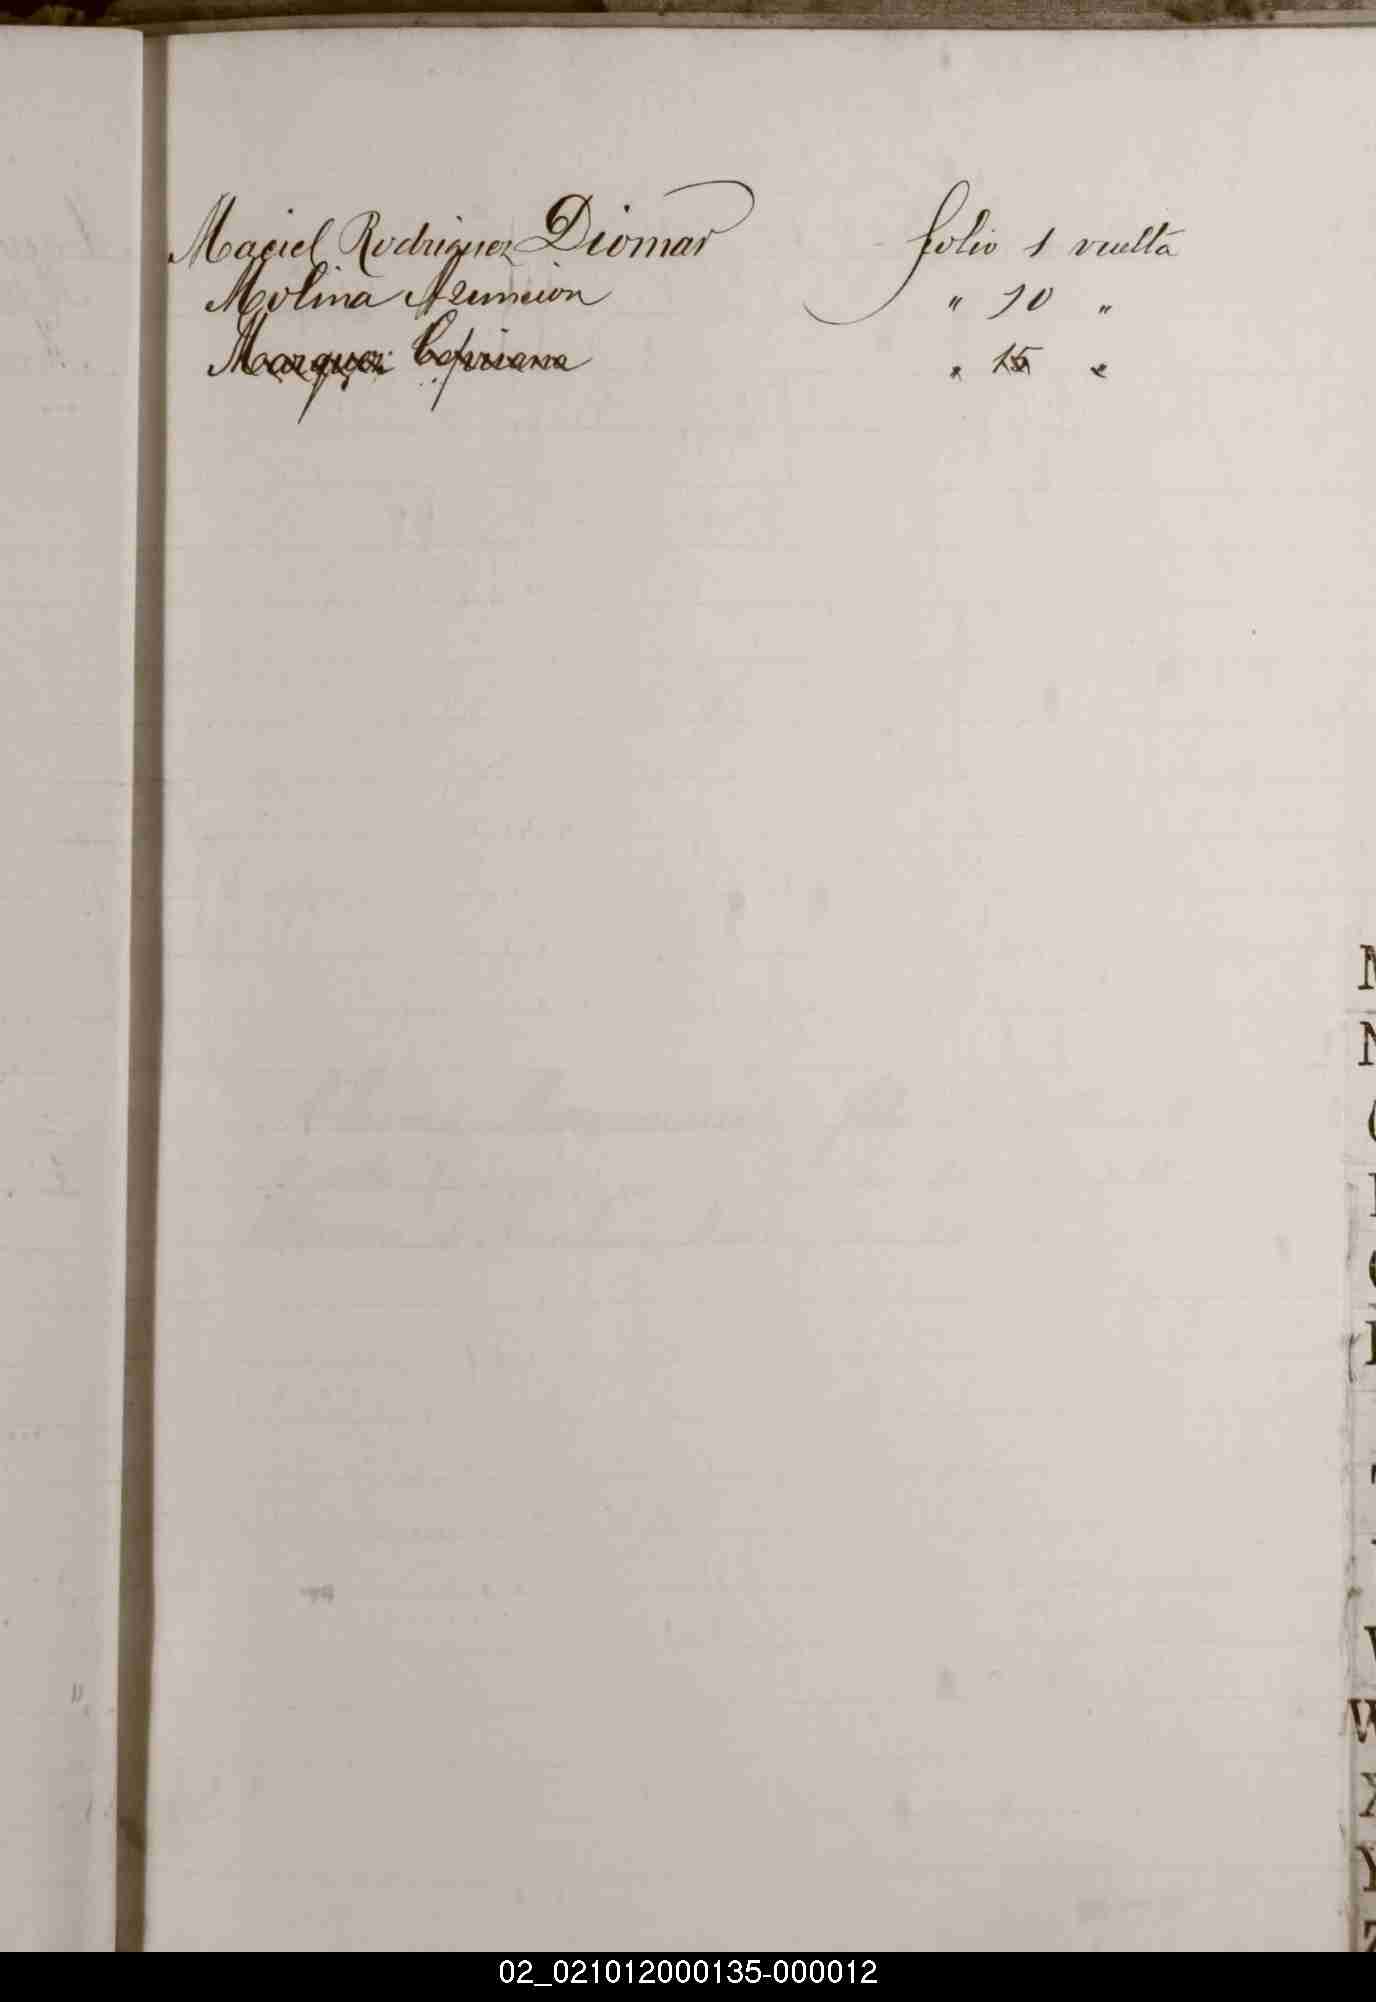 Maciel Rodriguez Diomar folio 1 vuelta
Molina Azuncion " 10 "
Marquez Cipriana " 15 "
M
N
O
P
Q
R
T
V
W
X
Y
Z
02_021012000135-000012